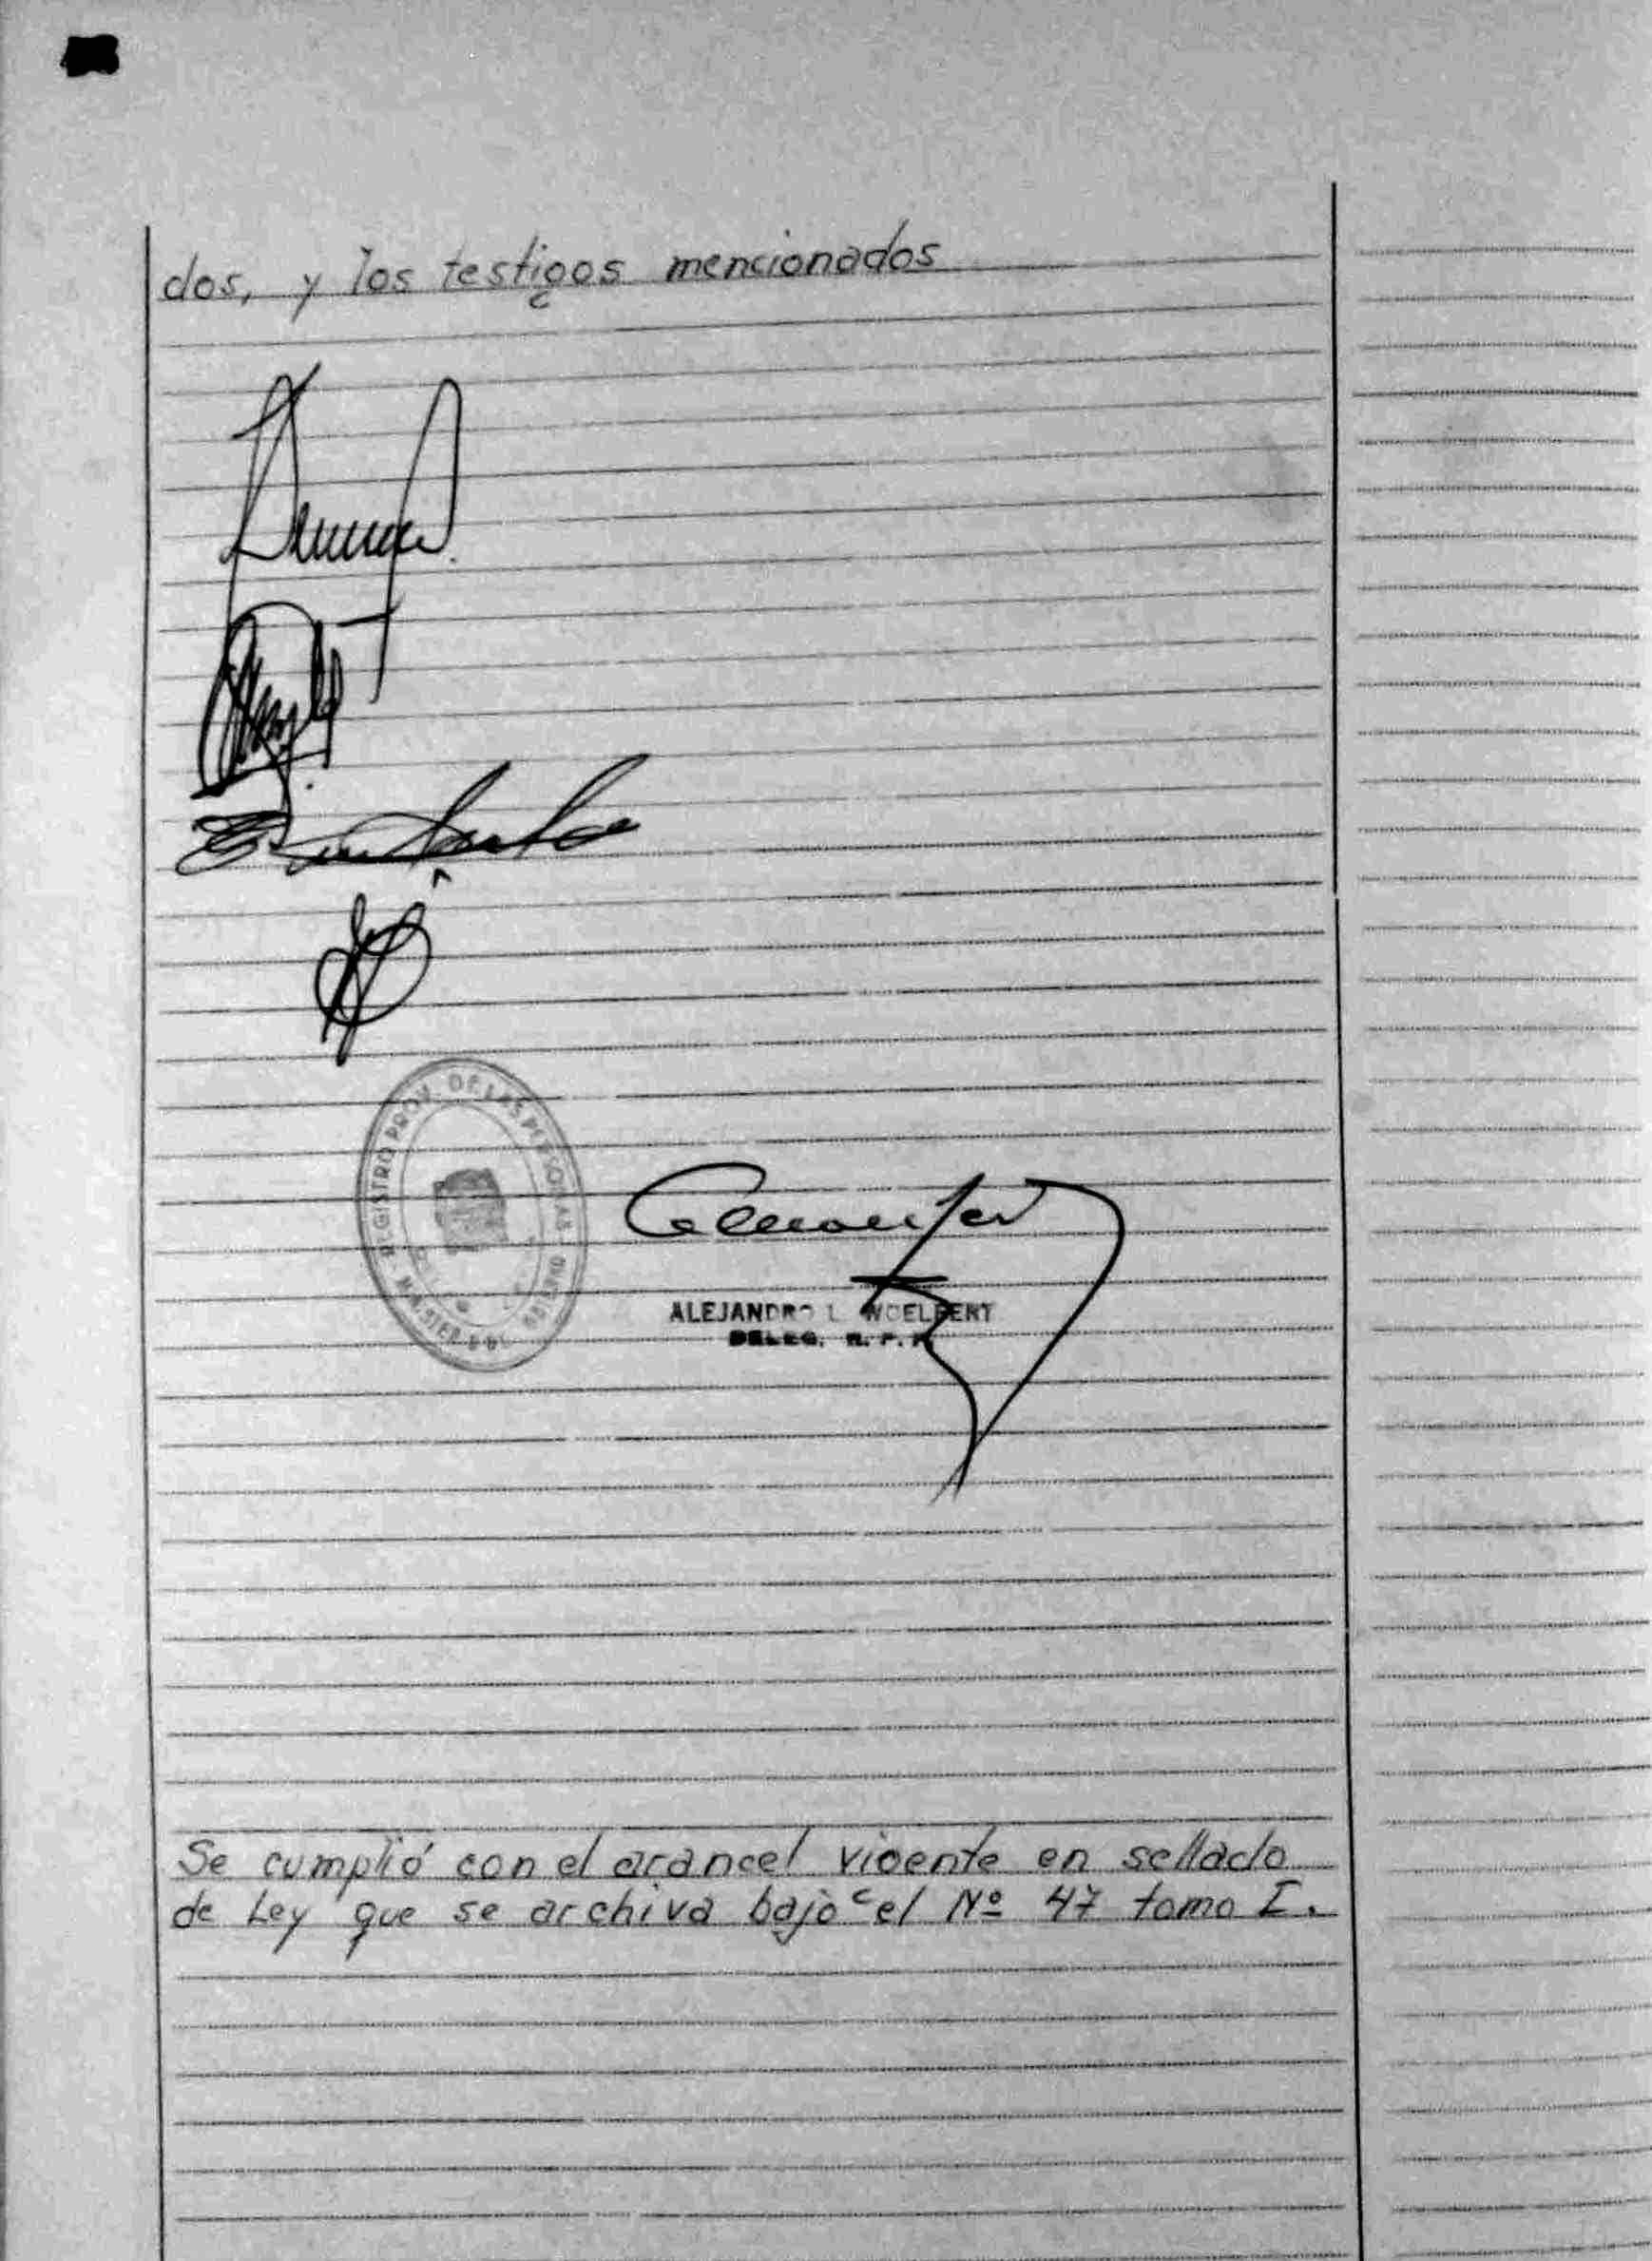 dos, y los testigos mencionados
REGISTRO PROV. DE LAS PERSONAS
ALEJANDRO L. WOELFERT
DELEG. R. P. P.
Se cumplió con el arancel vigente en sellado
de Ley que se archiva bajo el Nº 47 tomo I.